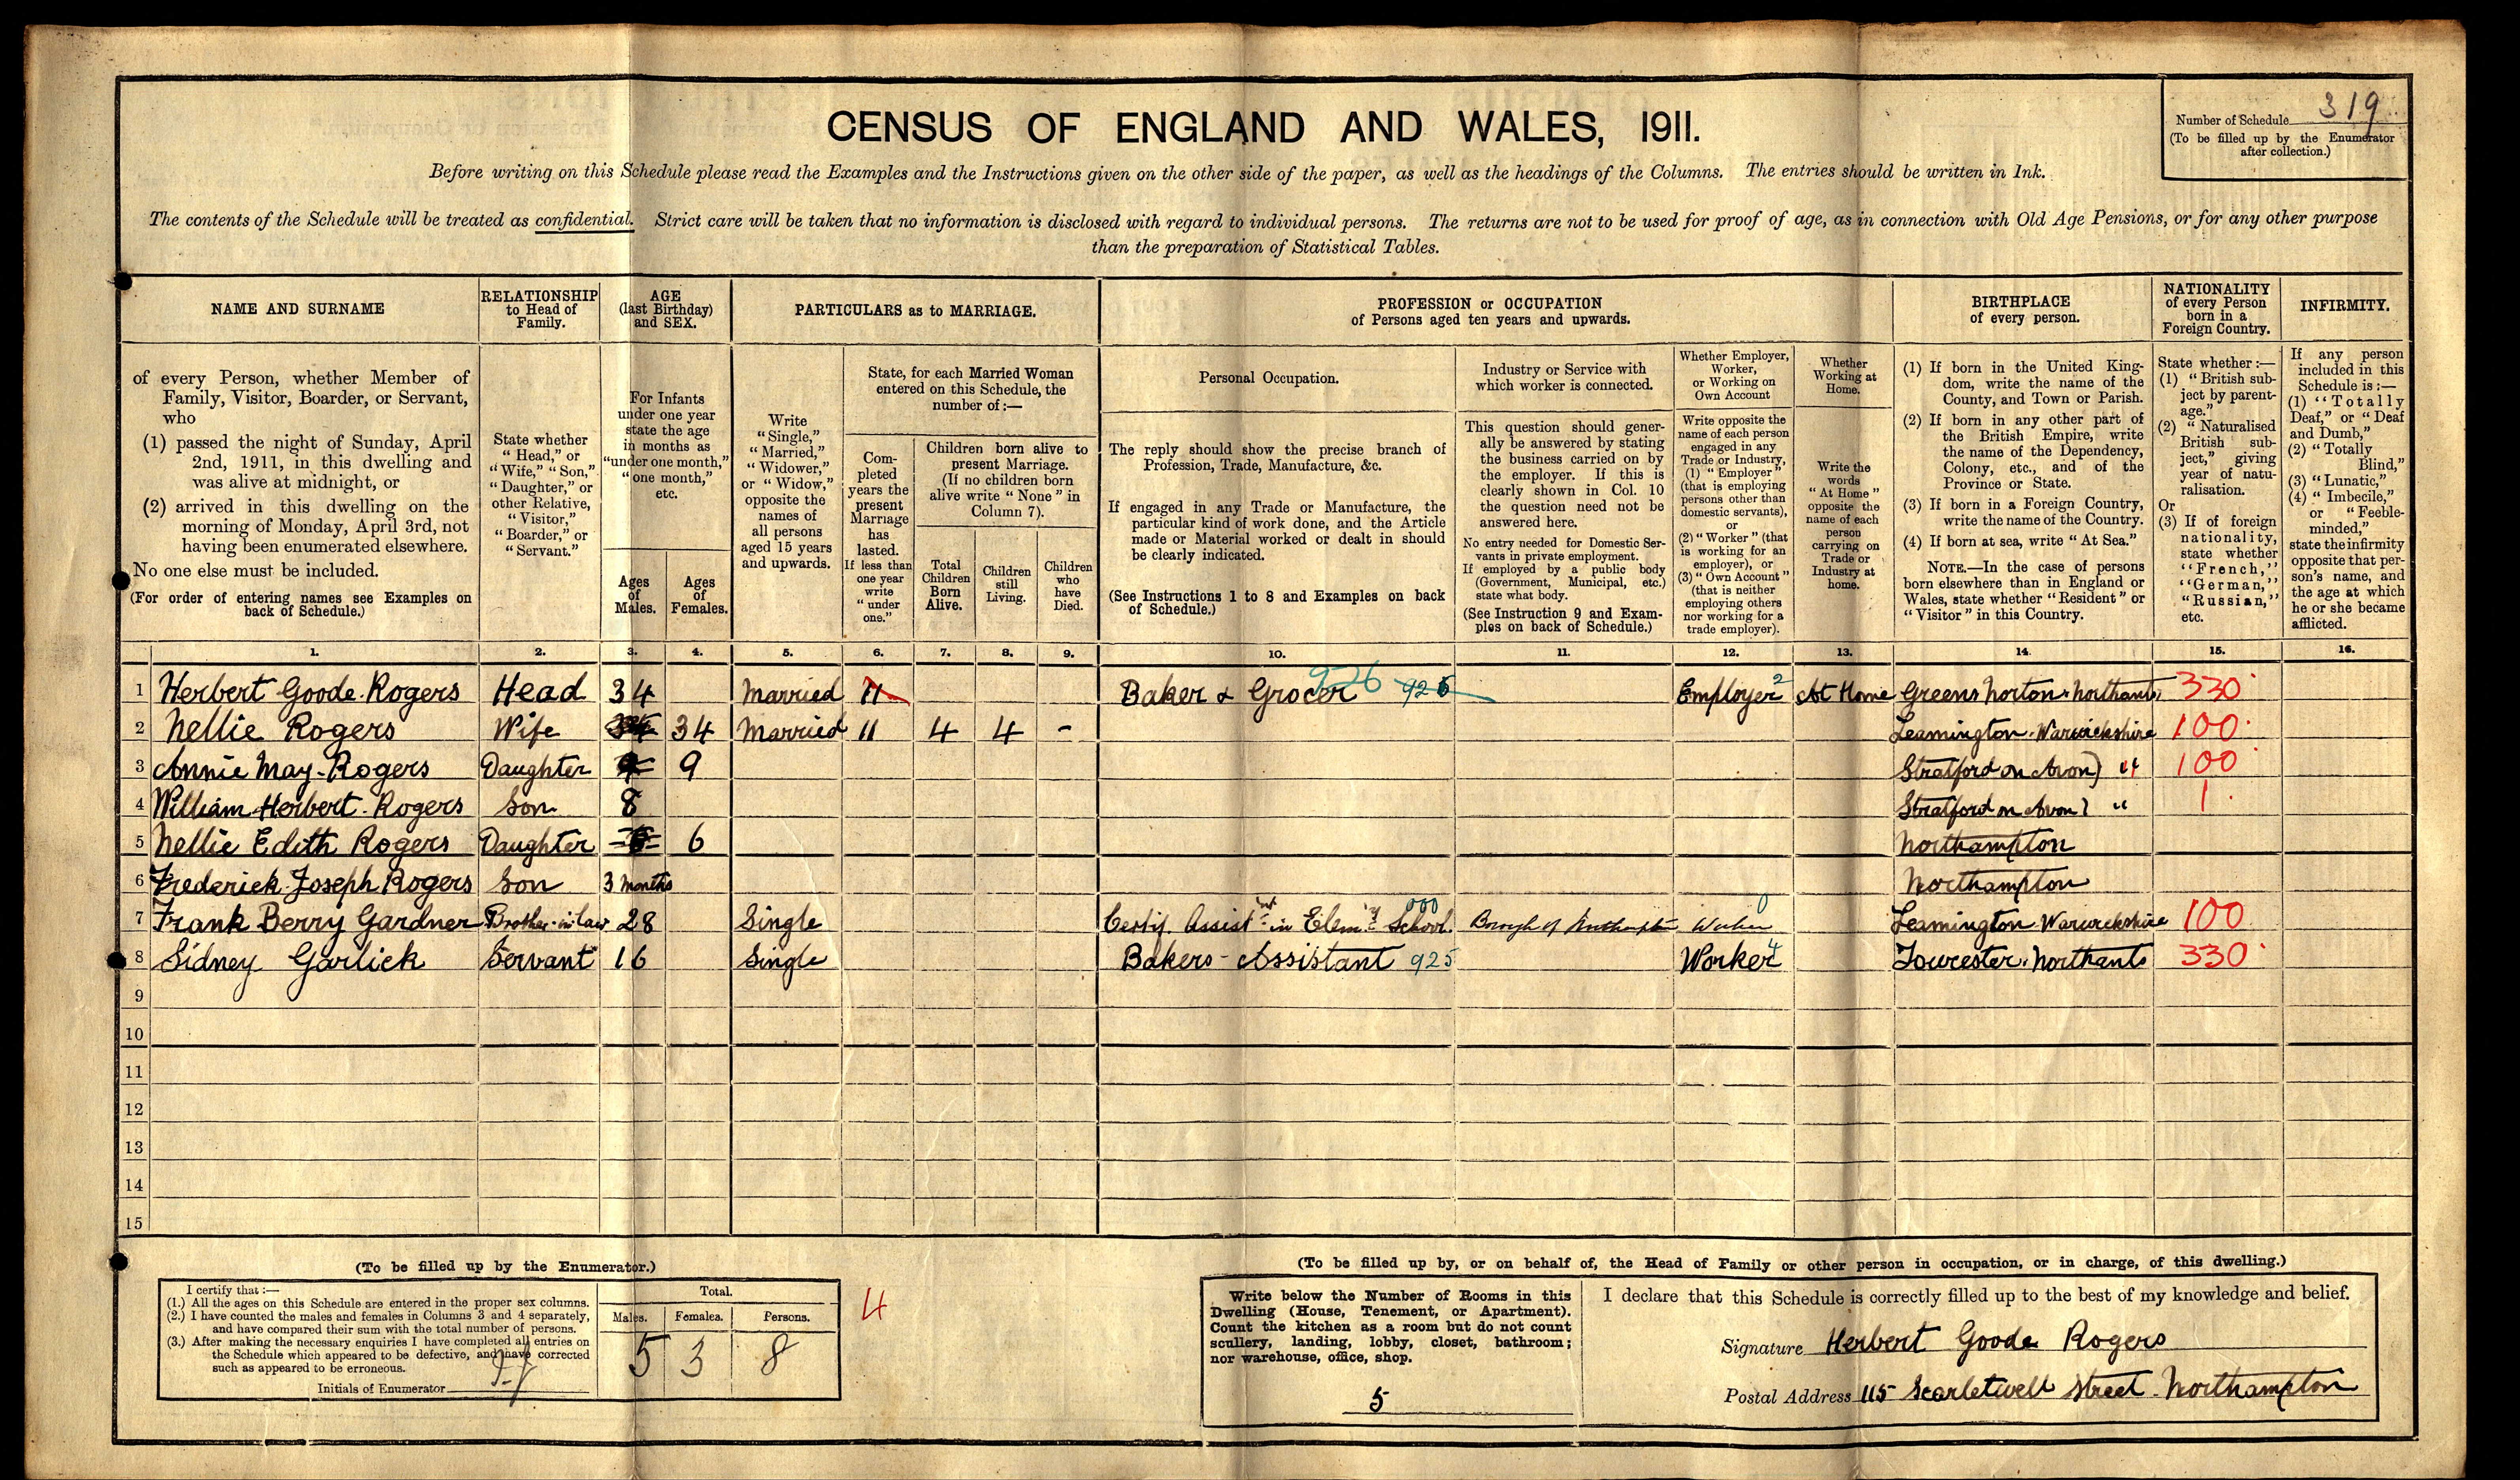 CENSUS OF ENGLAND AND WALES, 1911.
Number of Schedule 319
(To be filled up by the Enumerator after collection.)
Before writing on this Schedule please read the Examples and the Instructions given on the other side of the paper, as well as the headings of the Columns. The entries should be written in Ink.
The contents of the Schedule will be treated as confidential. Strict care will be taken that no information is disclosed with regard to individual persons. The returns are not to be used for proof of age, as in connection with Old Age Pensions, or for any other purpose
than the preparation of Statistical Tables.
NAME AND SURNAME
RELATIONSHIP to Head of Family.
AGE (last Birthday) and SEX.
PARTICULARS as to MARRIAGE.
PROFESSION or OCCUPATION of Persons aged ten years and upwards.
BIRTHPLACE of every person.
NATIONALITY of every Person born in a Foreign Country.
INFIRMITY.
of every Person, whether Member of
Family, Visitor, Boarder, or Servant,
who
(1) passed the night of Sunday, April
2nd, 1911, in this dwelling and
was alive at midnight, or
(2) arrived in this dwelling on the
morning of Monday, April 3rd, not
having been enumerated elsewhere.
No one else must be included.
(For order of entering names see Examples on
back of Schedule.)
State whether
"Head," or
"Wife," "Son,"
"Daughter," or
other Relative,
"Visitor,"
"Boarder," or
"Servant."
For Infants
under one year
state the age
in months as
"under one month,"
"one month,"
etc.
Ages of Males.
Ages of Females.
Write
"Single,"
"Married,"
"Widower,"
or "Widow,"
opposite the
names of
all persons
aged 15 years
and upwards.
State, for each Married Woman
entered on this Schedule, the
number of:—
Completed
years the
present
Marriage
has
lasted.
If less than
one year
write
"under
one."
Children born alive to
present Marriage.
(If no children born
alive write "None" in
Column 7).
Total Children Born Alive.
Children still Living.
Children who have Died.
Personal Occupation.
The reply should show the precise branch of
Profession, Trade, Manufacture, &c.
If engaged in any Trade or Manufacture, the
particular kind of work done, and the Article
made or Material worked or dealt in should
be clearly indicated.
(See Instructions 1 to 8 and Examples on back
of Schedule.)
Industry or Service with
which worker is connected.
This question should gener-
ally be answered by stating
the business carried on by
the employer. If this is
clearly shown in Col. 10
the question need not be
answered here.
No entry needed for Domestic Ser-
vants in private employment.
If employed by a public body
(Government, Municipal, etc.)
state what body.
(See Instruction 9 and Exam-
ples on back of Schedule.)
Whether Employer,
Worker,
or Working on
Own Account
Write opposite the
name of each person
engaged in any
Trade or Industry,
(1) "Employer"
(that is employing
persons other than
domestic servants),
or
(2) "Worker" (that
is working for an
employer), or
(3) "Own Account"
(that is neither
employing others
nor working for a
trade employer).
Whether
Working at
Home.
Write the
words
"At Home"
opposite the
name of each
person
carrying on
Trade or
Industry at
home.
(1) If born in the United King-
dom, write the name of the
County, and Town or Parish.
(2) If born in any other part of
the British Empire, write
the name of the Dependency,
Colony, etc., and of the
Province or State.
(3) If born in a Foreign Country,
write the name of the Country.
(4) If born at sea, write "At Sea."
NOTE.—In the case of persons
born elsewhere than in England or
Wales, state whether "Resident" or
"Visitor" in this Country.
State whether:—
(1) "British sub-
ject by parent-
age."
(2) "Naturalised
British sub-
ject," giving
year of natu-
ralisation.
Or
(3) If of foreign
nationality,
state whether
"French,"
"German,"
"Russian,"
etc.
If any person
included in this
Schedule is:—
(1) "Totally
Deaf," or "Deaf
and Dumb,"
(2) "Totally
Blind,"
(3) "Lunatic,"
(4) "Imbecile,"
or "Feeble-
minded,"
state the infirmity
opposite that per-
son's name, and
the age at which
he or she became
afflicted.
1. 2. 3. 4. 5. 6. 7. 8. 9. 10. 11. 12. 13. 14. 15. 16.
1 Herbert Goode Rogers Head 34 Married 11 Baker & Grocer 926 925 Employer 2 At Home Greens Norton Northants 330
2 Nellie Rogers Wife 34 34 Married 11 4 4 - Leamington Warwickshire 100
3 Annie May Rogers Daughter 9 9 Stratford on Avon) " 100
4 William Herbert Rogers Son 8 Stratford on Avon) " 1
5 Nellie Edith Rogers Daughter 6 6 Northampton
6 Frederick Joseph Rogers Son 3 months Northampton
7 Frank Berry Gardner Brother-in-law 28 Single Certif. Assistnt in Elemy School 000 Borough of Northampton Worker 0 Leamington Warwickshire 100
8 Sidney Garlick Servant 16 Single Bakers-Assistant 925 Worker 4 Towcester Northants 330
9
10
11
12
13
14
15
(To be filled up by the Enumerator.)
I certify that:—
(1.) All the ages on this Schedule are entered in the proper sex columns.
(2.) I have counted the males and females in Columns 3 and 4 separately,
and have compared their sum with the total number of persons.
(3.) After making the necessary enquiries I have completed all entries on
the Schedule which appeared to be defective, and have corrected
such as appeared to be erroneous.
Initials of Enumerator
Total.
Males. Females. Persons.
5 3 8
4
(To be filled up by, or on behalf of, the Head of Family or other person in occupation, or in charge, of this dwelling.)
Write below the Number of Rooms in this
Dwelling (House, Tenement, or Apartment).
Count the kitchen as a room but do not count
scullery, landing, lobby, closet, bathroom;
nor warehouse, office, shop.
5
I declare that this Schedule is correctly filled up to the best of my knowledge and belief.
Signature Herbert Goode Rogers
Postal Address 115 Scarletwell Street Northampton